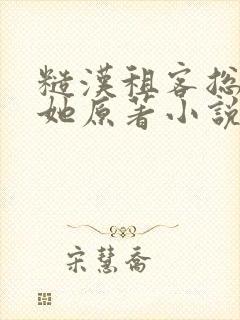 糙漢租客總
她原著小說
宋慧喬